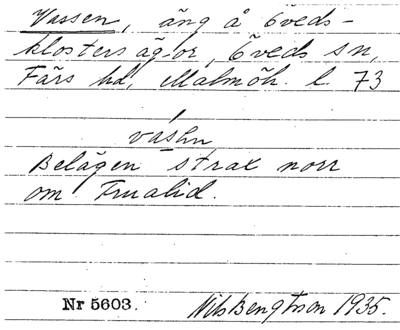 Vassen, äng å Öveds-
klosters äg-or, Öveds sn,
Färs hd, Malmöh. l. 73
vasʌn
Belägen strax norr
om Frualid.
Nr 5603. Nils Bengtsson 1935.